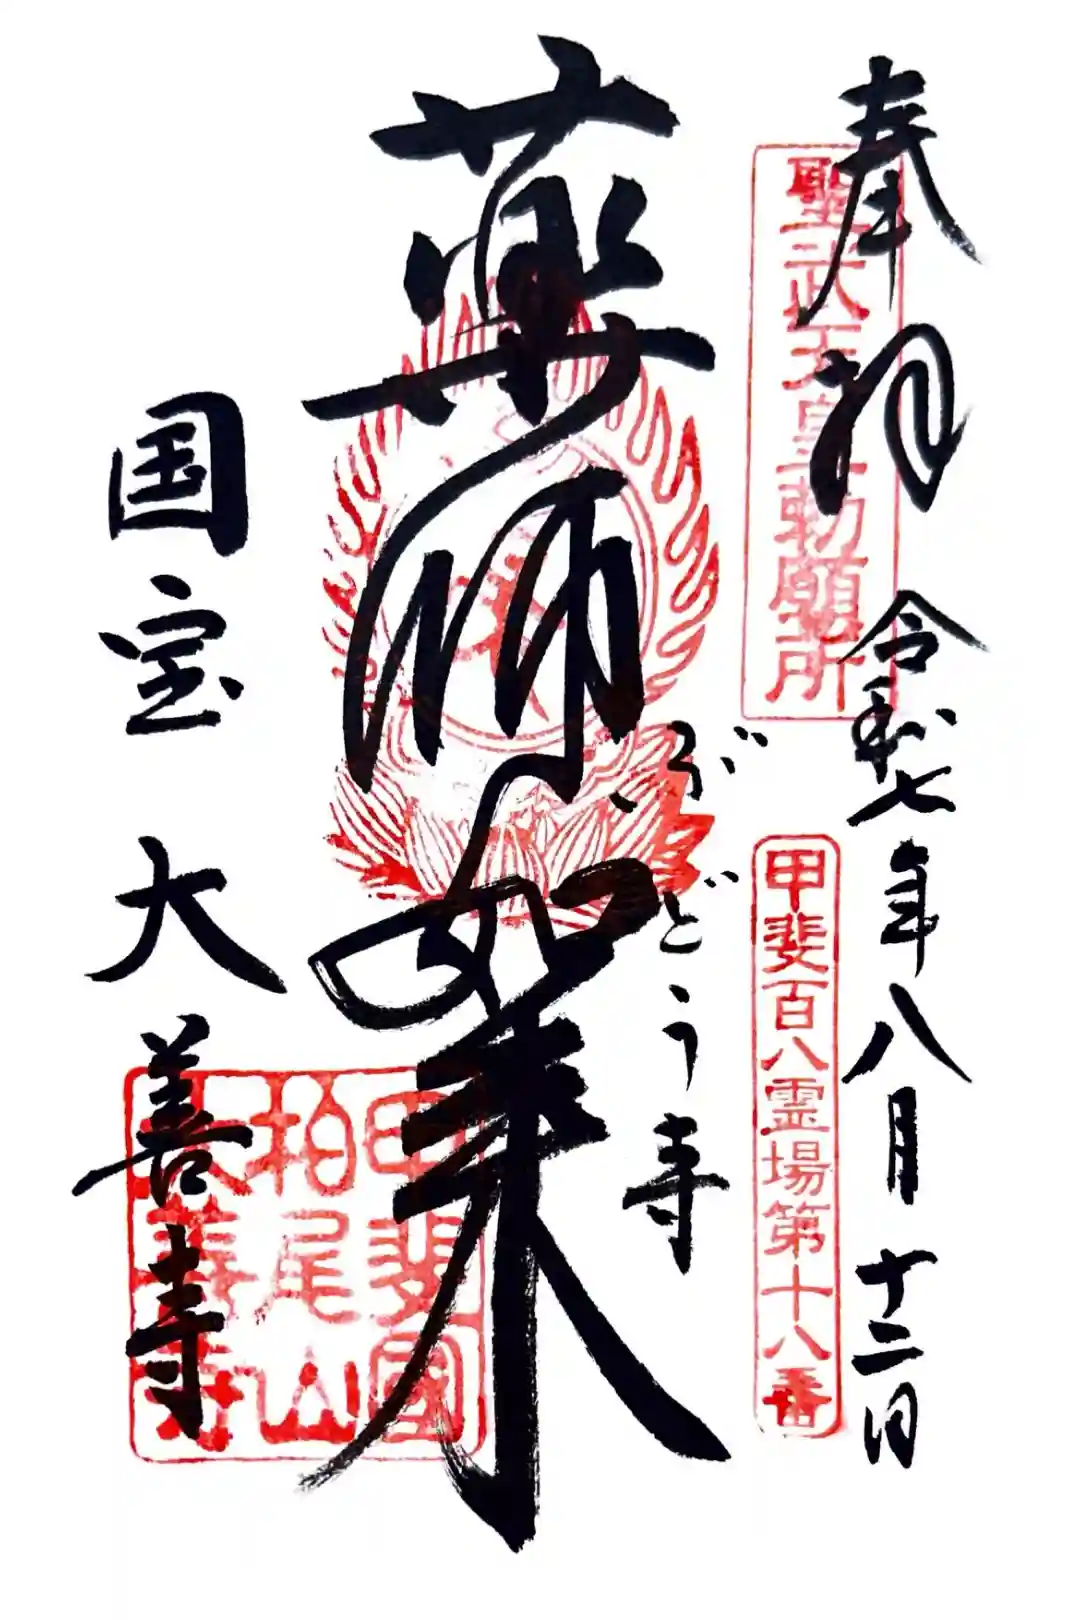 奉拝
令和七年八月十二日
聖武天皇勅願所
甲斐百八霊場第十八番
ぶどう寺
薬師如来
甲斐國
柏尾山
大善寺
国宝大善寺